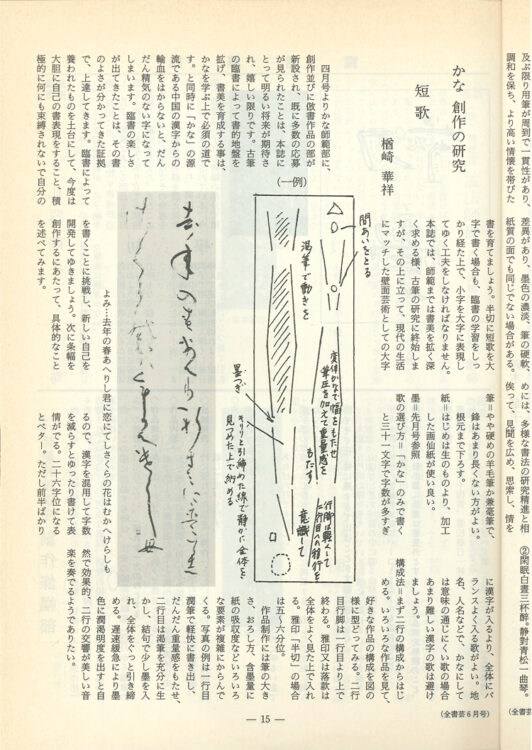 及ぶ限り用筆が周到で一貫性があり、
調和を保ち、より高い情懐を帯びた
かな 創作の研究
短歌
楢崎 華祥
四月号よりかな師範部に、
創作並びに倣書作品の部が
新設され、既に多数の応募
が見られたことは、本誌に
とって明るい将来が期待さ
れ、嬉しい限りです。古筆
の臨書によって書的地盤を
拡げ、書美を育成する事は、
かなを学ぶ上で必須の道で
す。と同時に「かな」の源
流である中国の漢字からの
輸血をはからないと、だん
だん精気のない字になって
しまいます。臨書の楽しさ
が出てきたことは、その書
のよさが分かってきた証拠
で、上達してきます。臨書によって
養われたものを土台にして、今度は
大胆に自己の書表現をすること、積
極的に何にも束縛されないで自分の
差異があり、墨色の濃淡、筆の硬軟、
紙質の面でも同じでない場合がある。
書を育てましょう。半切に短歌を大
字で書く場合も、臨書の学習をしっ
かり経た上で、小字を大字に表現し
てゆく工夫をしなければなりません。
本誌では、師範までは書美を拡く深
く求める様、古筆の研究に終始しま
すが、その上に立って、現代の生活
にマッチした壁面芸術としての大字
(一例)
間あいをとる
渇筆で動きを
変体かなで幅をもたせ
筆圧を加えて重量感を
もたす。
行脚は戦えして
二行目への移行を
意識して
墨つぎ
キリリと引締めた線で静かに全体を
見つめた上で納める
よみ…去年の春あへりし君に恋にてしさくらの花はむかへけらしも
を書くことに挑戦し、新しい自己を
開発してゆきましょう。次に条幅を
創作するにあたって、具体的なこと
を述べてみます。
めには、多様な書法の研究精進と相
俟って、見聞を広め、思索し、情を
筆=やや硬めの羊毛筆か兼毫筆で、
鋒はあまり長くない方がよい。
根元まで下ろす。
紙=はじめは生のものより、加工
した画仙紙が使い良い。
墨=先月号参照
歌の選び方=「かな」のみで書く
と三十一文字で字数が多すぎ
るので、漢字を混用して字数
を減らすとゆったり書けて表
情がでる。二十六字位になる
とベター。ただし前半ばかり
②閑眠白晝三杯醉。静對靑松一曲琴。
に漢字が入るより、全体にバ
ランスよく入る歌がよい。地
名、人名などで、かなにして
は意味の通じにくい歌の場合
あまり難しい漢字の歌は避け
ましょう。
構成法=まず二行の構成からはじ
める。いろいろな作品を見て、
好きな作品の構成を図の
様に型どってみる。二行
目行脚は一行目より上で
終わる。雅印又は落款は
全体をよく見た上で入れ
る。雅印「半切」の場合
は五〜六分位。
作品制作には筆の大き
さ、おろし方、含墨量に
紙の吸収度などいろいろ
な要素が複雑にからんで
くる。写真の例は一行目
潤筆で軽快に書き出し、
だんだん重量感をもたせ、
二行目は渇筆を充分に生
かし、結句で少し墨を入
れ、全体をぐっと引き締
める。遅速緩急により墨
色に潤渇明度を出すと自
然で効果的、二行の交響が美しい音
楽を奏でるようでありたい。
(全書芸6月号)
(全書芸
— 15 —